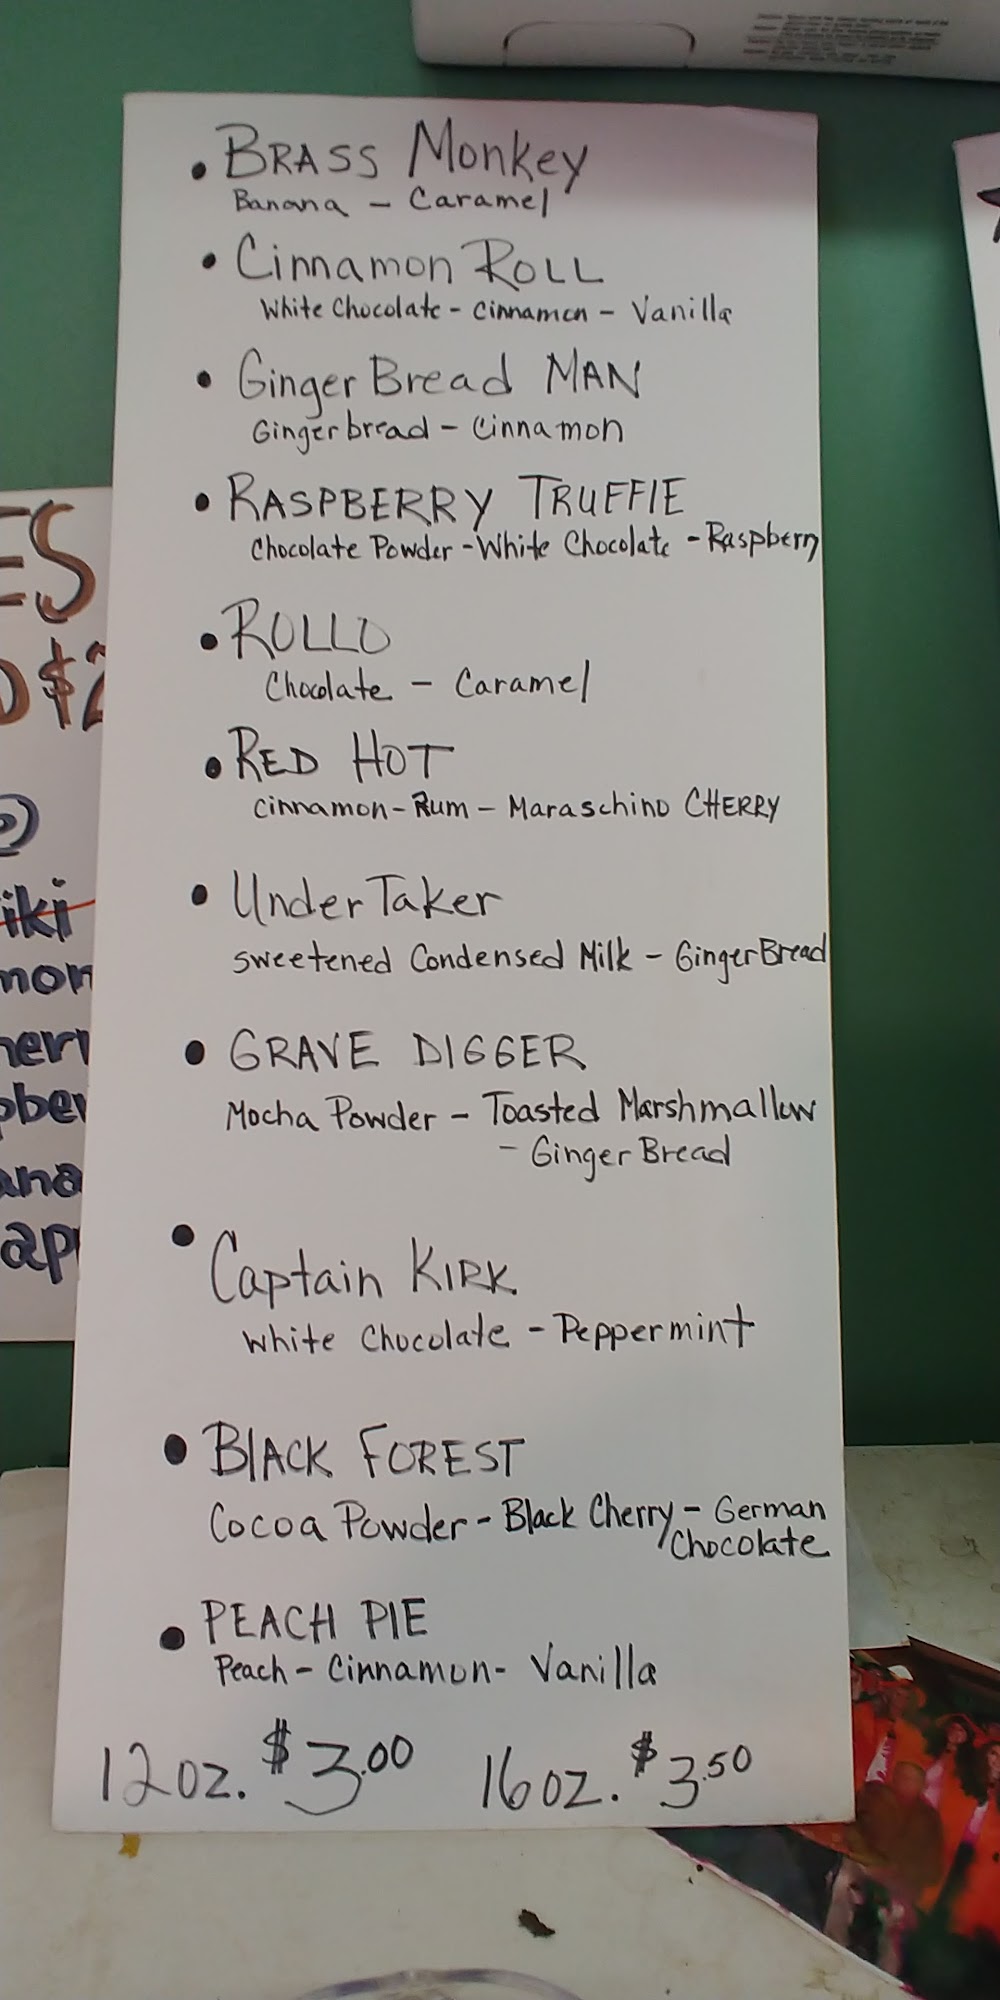 • BRASS Monkey
Banana - Caramel
• Cinnamon ROLL
White Chocolate - Cinnamon - Vanilla
• Ginger Bread MAN
Gingerbread - Cinnamon
• RASPBERRY TRUFFlE
Chocolate Powder - White Chocolate - Raspberry
• ROLLO
Chocolate - Caramel
• RED HOT
Cinnamon - Rum - Maraschino CHERRY
• UnderTaker
Sweetened Condensed Milk - GingerBread
• GRAVE DIGGER
Mocha Powder - Toasted Marshmallow
- Ginger Bread
• Captain KIRK
White Chocolate - Peppermint
• BlACK FOREST
Cocoa Powder - Black Cherry - German
Chocolate
• PEACH PIE
Peach - Cinnamon - Vanilla
12 oz. $3.00 16 oz. $3.50
ES
$2
iki
mon
herr
pber
ana
app